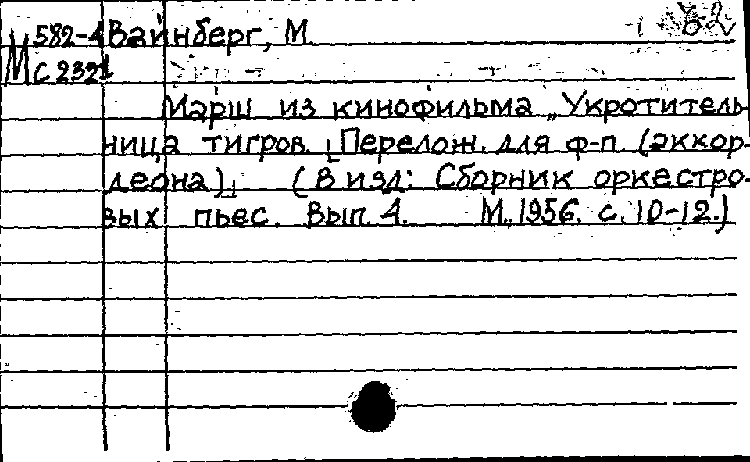 М 582-4 Вайнберг, М
С 2321
Марш из кинофильма „Укротитель-
ница тигров. [Перелож. для ф-п. (аккор-
деона)] (В изд: Сборник оркестро-
вых пьес. Вып. 4. М., 1956. с. 10-12.)